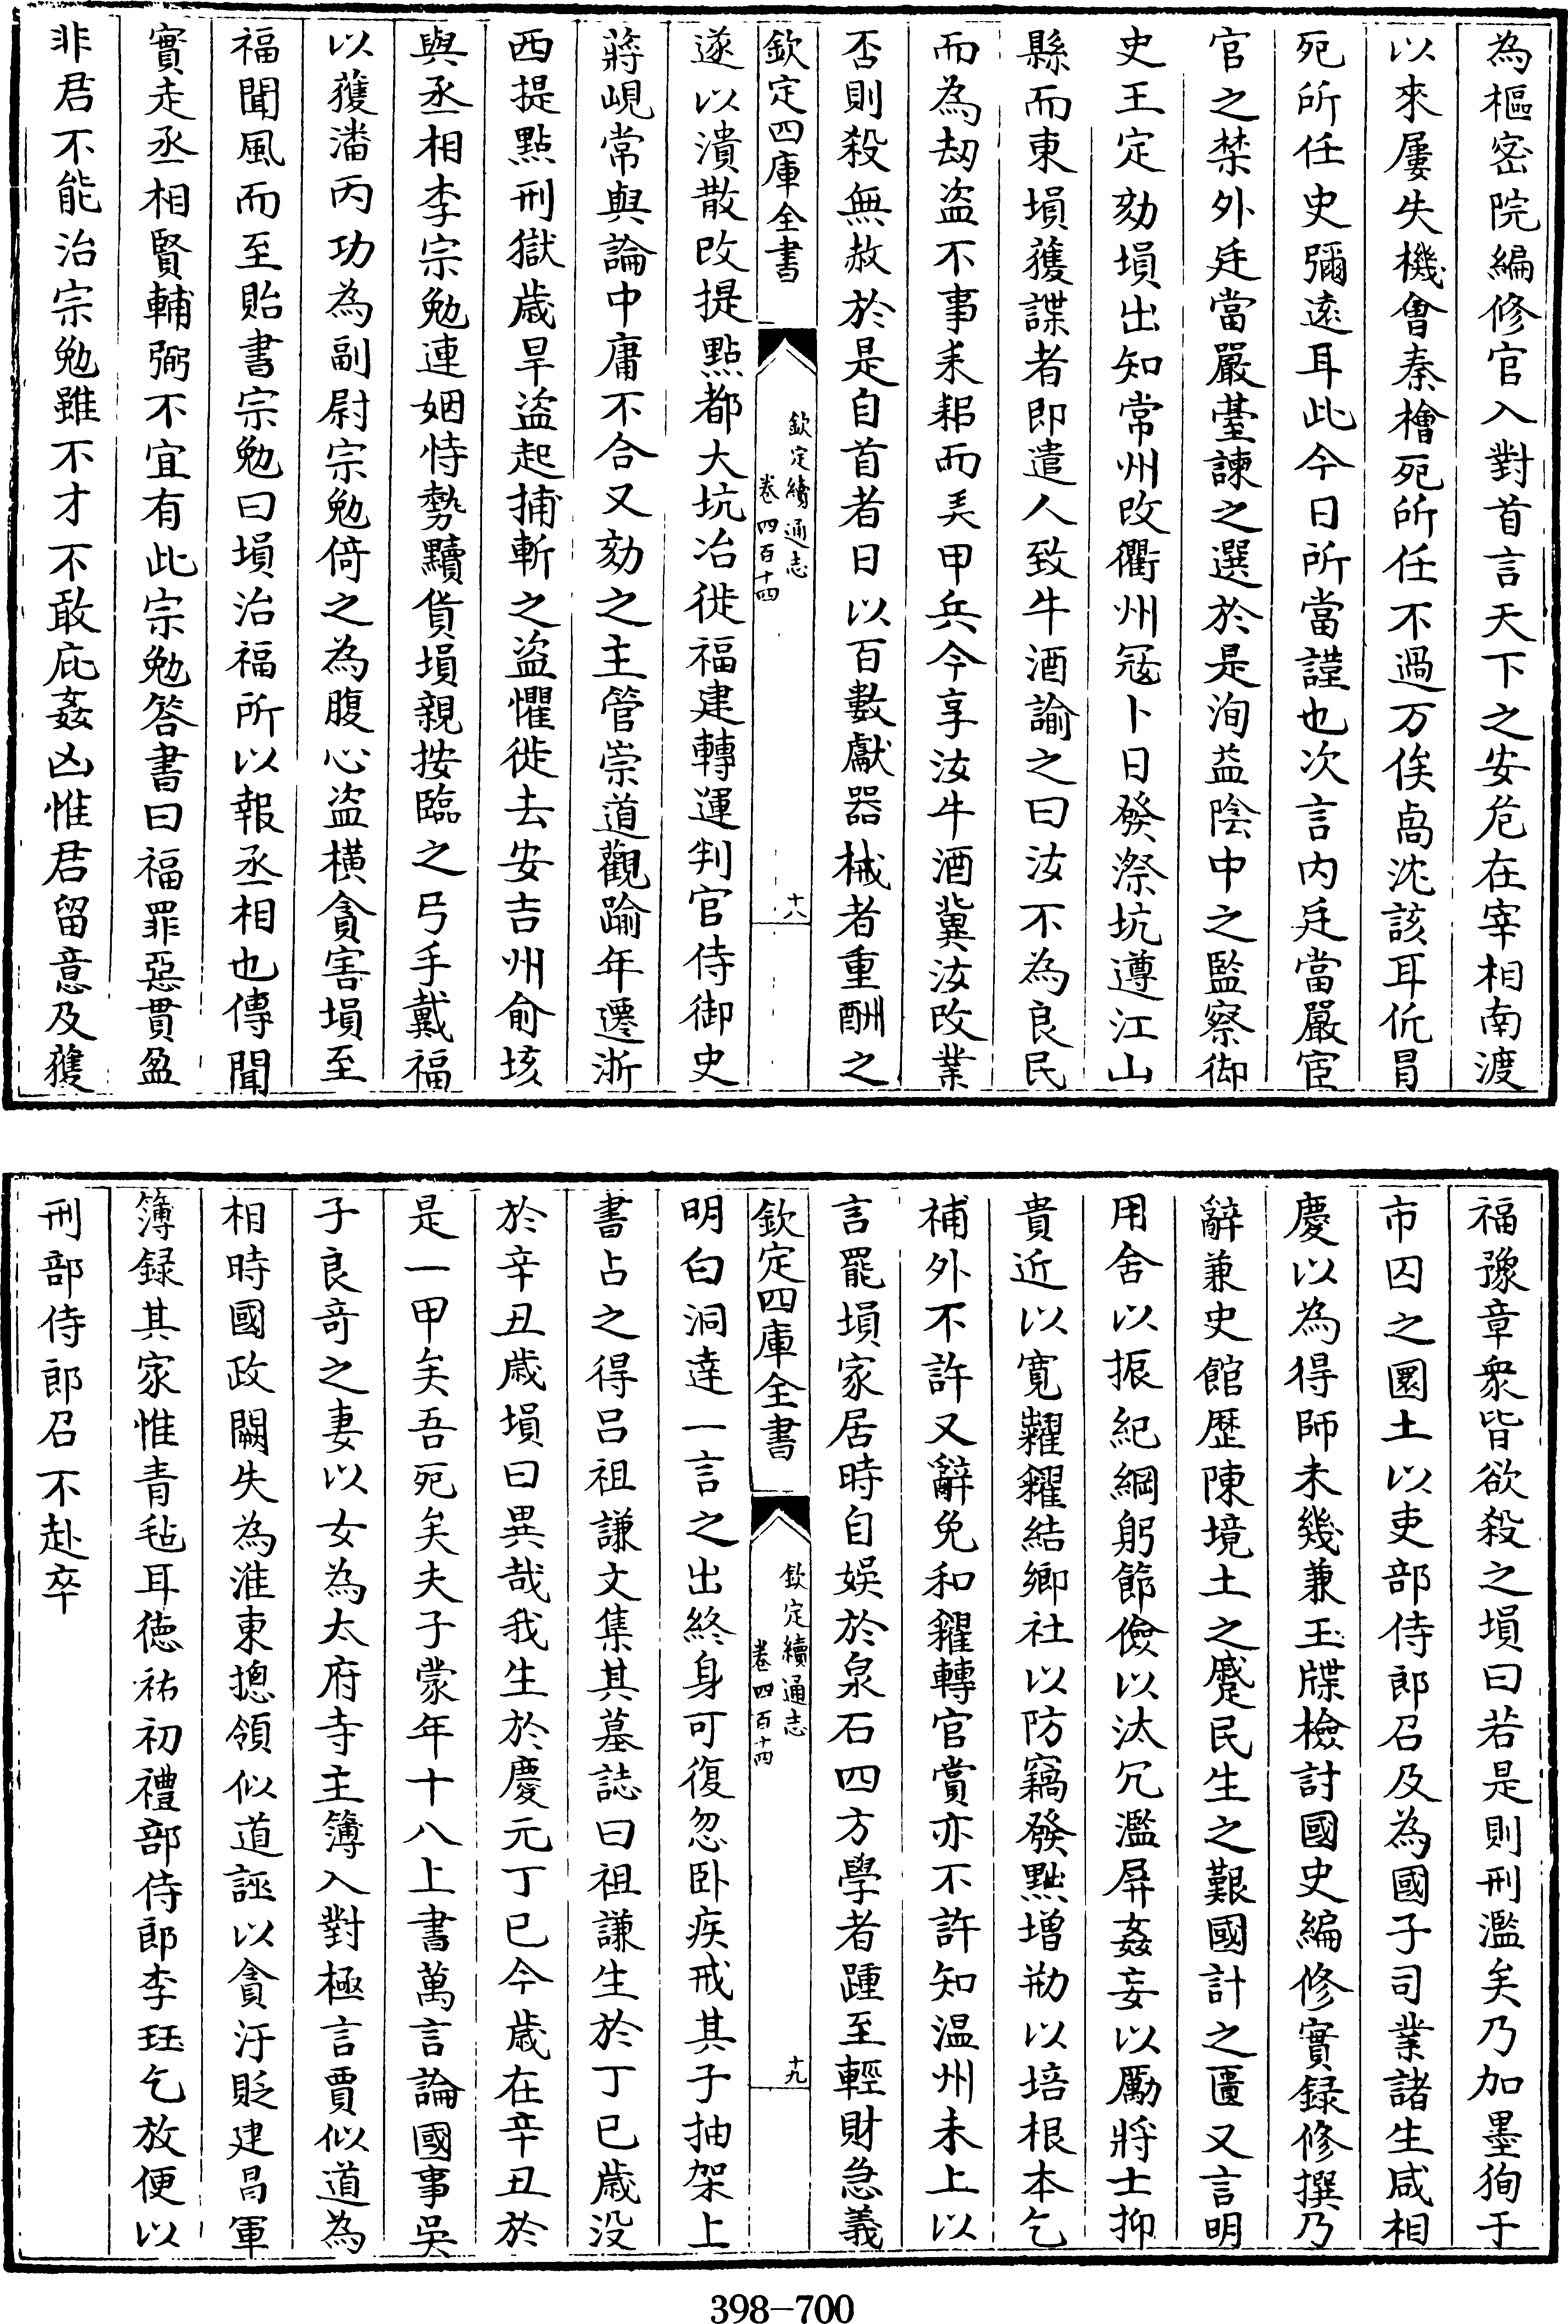 為樞密院編修官入對首言天下之安危在宰相南渡
以來屢失機會秦檜死所任不過万俟卨沈該耳侂冑
死所任史彌遠耳此今日所當謹也次言内廷當嚴宦
官之禁外廷當嚴臺諫之選於是洵益陰中之監察御
史王定劾塤出知常州改衢州寇卜日發漈坑遵江山
縣而東塤獲諜者即遣人致牛酒諭之曰汝不為良民
而為劫盗不事耒耜而弄甲兵今享汝牛酒冀汝改業
否則殺無赦於是自首者日以百數獻器械者重酬之
欽定四庫全書
欽定續通志
卷四百十四
十八
遂以潰散改提點都大坑冶徙福建轉運判官侍御史
蔣峴常與論中庸不合又劾之主管崇道觀踰年遷浙
西提點刑獄歳旱盗起捕斬之盗懼徙去安吉州俞垓
與丞相李宗勉連姻恃勢黷貨塤親按臨之弓手戴福
以獲潘丙功為副尉宗勉倚之為腹心盗横貪害塤至
福聞風而至貽書宗勉曰塤治福所以報丞相也傳聞
實走丞相賢輔弼不宜有此宗勉答書曰福罪惡貫盈
非君不能治宗勉雖不才不敢庇姦凶惟君留意及獲
福豫章衆皆欲殺之塤曰若是則刑濫矣乃加墨狥于
市囚之圜土以吏部侍郎召及為國子司業諸生咸相
慶以為得師未幾兼玉牒檢討國史編修實録修撰乃
辭兼史館歴陳境土之蹙民生之艱國計之匱又言明
用舍以振紀綱躬節儉以汰冗濫屏姦妄以勵將士抑
貴近以寛糶糴結鄉社以防竊發黜增勘以培根本乞
補外不許又辭免和糴轉官賞亦不許知温州未上以
言罷塤家居時自娱於泉石四方學者踵至輕財急義
欽定四庫全書
欽定續通志
卷四百十四
十九
明白洞達一言之出終身可復忽卧疾戒其子抽架上
書占之得吕祖謙文集其墓誌曰祖謙生於丁巳歳没
於辛丑歳塤曰異哉我生於慶元丁巳今歳在辛丑於
是一甲矣吾死矣夫子蒙年十八上書萬言論國事吳
子良竒之妻以女為太府寺主簿入對極言賈似道為
相時國政闕失為淮東摠領似道誣以貪汙貶建昌軍
簿録其家惟青毡耳德祐初禮部侍郎李珏乞放便以
刑部侍郎召不赴卒
398-700